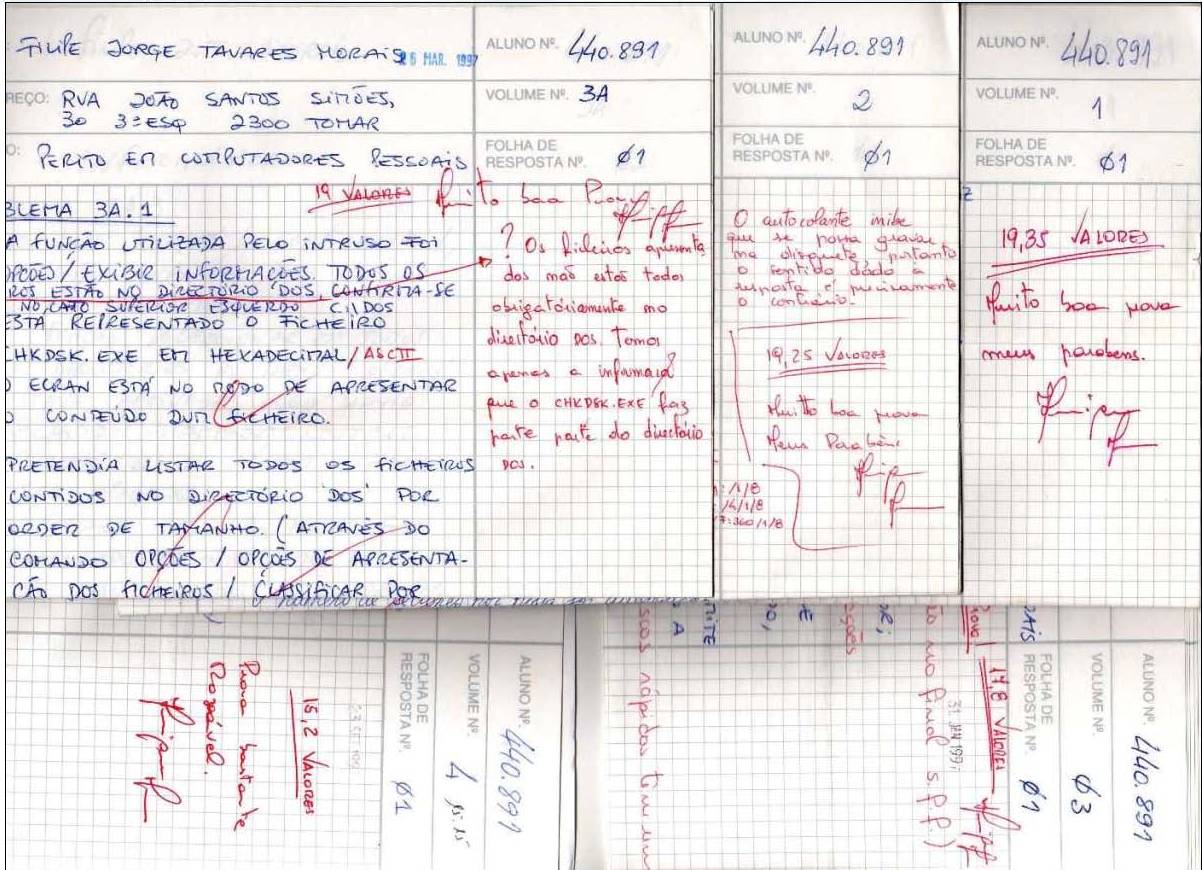 FILIPE JORGE TAVARES MORAIS
26 MAR. 1997
REÇO: RUA JOÃO SANTOS SIMÕES,
30 3º ESQ 2300 TOMAR
O: PERITO EM COMPUTADORES PESSOAIS
ALUNO Nº. 440.891
VOLUME Nº. 3A
FOLHA DE
RESPOSTA Nº. 01
19 VALORES Muito boa Prova
BLEMA 3A.1
A FUNÇÃO UTILIZADA PELO INTRUSO FOI
OPÇÕES / EXIBIR INFORMAÇÕES. TODOS OS
ROS ESTÃO NO DIRECTÓRIO DOS, CONFIRMA-SE
NO CANTO SUPERIOR ESQUERDO C:\DOS
ESTA REPRESENTADO O FICHEIRO
CHKDSK.EXE EM HEXADECIMAL/ASCII
O ECRAN ESTÁ NO MODO DE APRESENTAR
O CONTEÚDO DUM FICHEIRO.
PRETENDIA LISTAR TODOS OS FICHEIROS
CONTIDOS NO DIRECTÓRIO 'DOS' POR
ORDER DE TAMANHO. (ATRAVÉS DO
COMANDO OPÇÕES / OPÇÕES DE APRESENTA-
ÇÃO DOS FICHEIROS / CLASSIFICAR POR
? Os ficheiros apresenta
dos não estão todos
obrigatóriamente no
directório DOS. Temos
apenas a informação
que o CHKDSK.EXE faz
parte parte do directório
DOS.
ALUNO Nº. 440.891
VOLUME Nº. 2
FOLHA DE
RESPOSTA Nº. 01
O autocolante inibe
que se possa gravar
na disquete, portanto
o sentido dado à
resposta é precisamente
o contrário.
19,25 VALORES
Muitto boa prova
Meus Parabéns
/1/8
/4/1/8
7:360/1/8
ALUNO Nº. 440.891
VOLUME Nº. 1
FOLHA DE
RESPOSTA Nº. 01
19,35 VALORES
Muito boa prova
meus parabens.
ALUNO Nº. 440.891
VOLUME Nº. 4
FOLHA DE
RESPOSTA Nº. 01
15,2 VALORES
Prova bastante
Razoável.
ALUNO Nº. 440.891
VOLUME Nº. 03
FOLHA DE
RESPOSTA Nº. 01
AIS
31 JAN 199
17,8 VALORES
no final s.f.f.)
scos rápidos